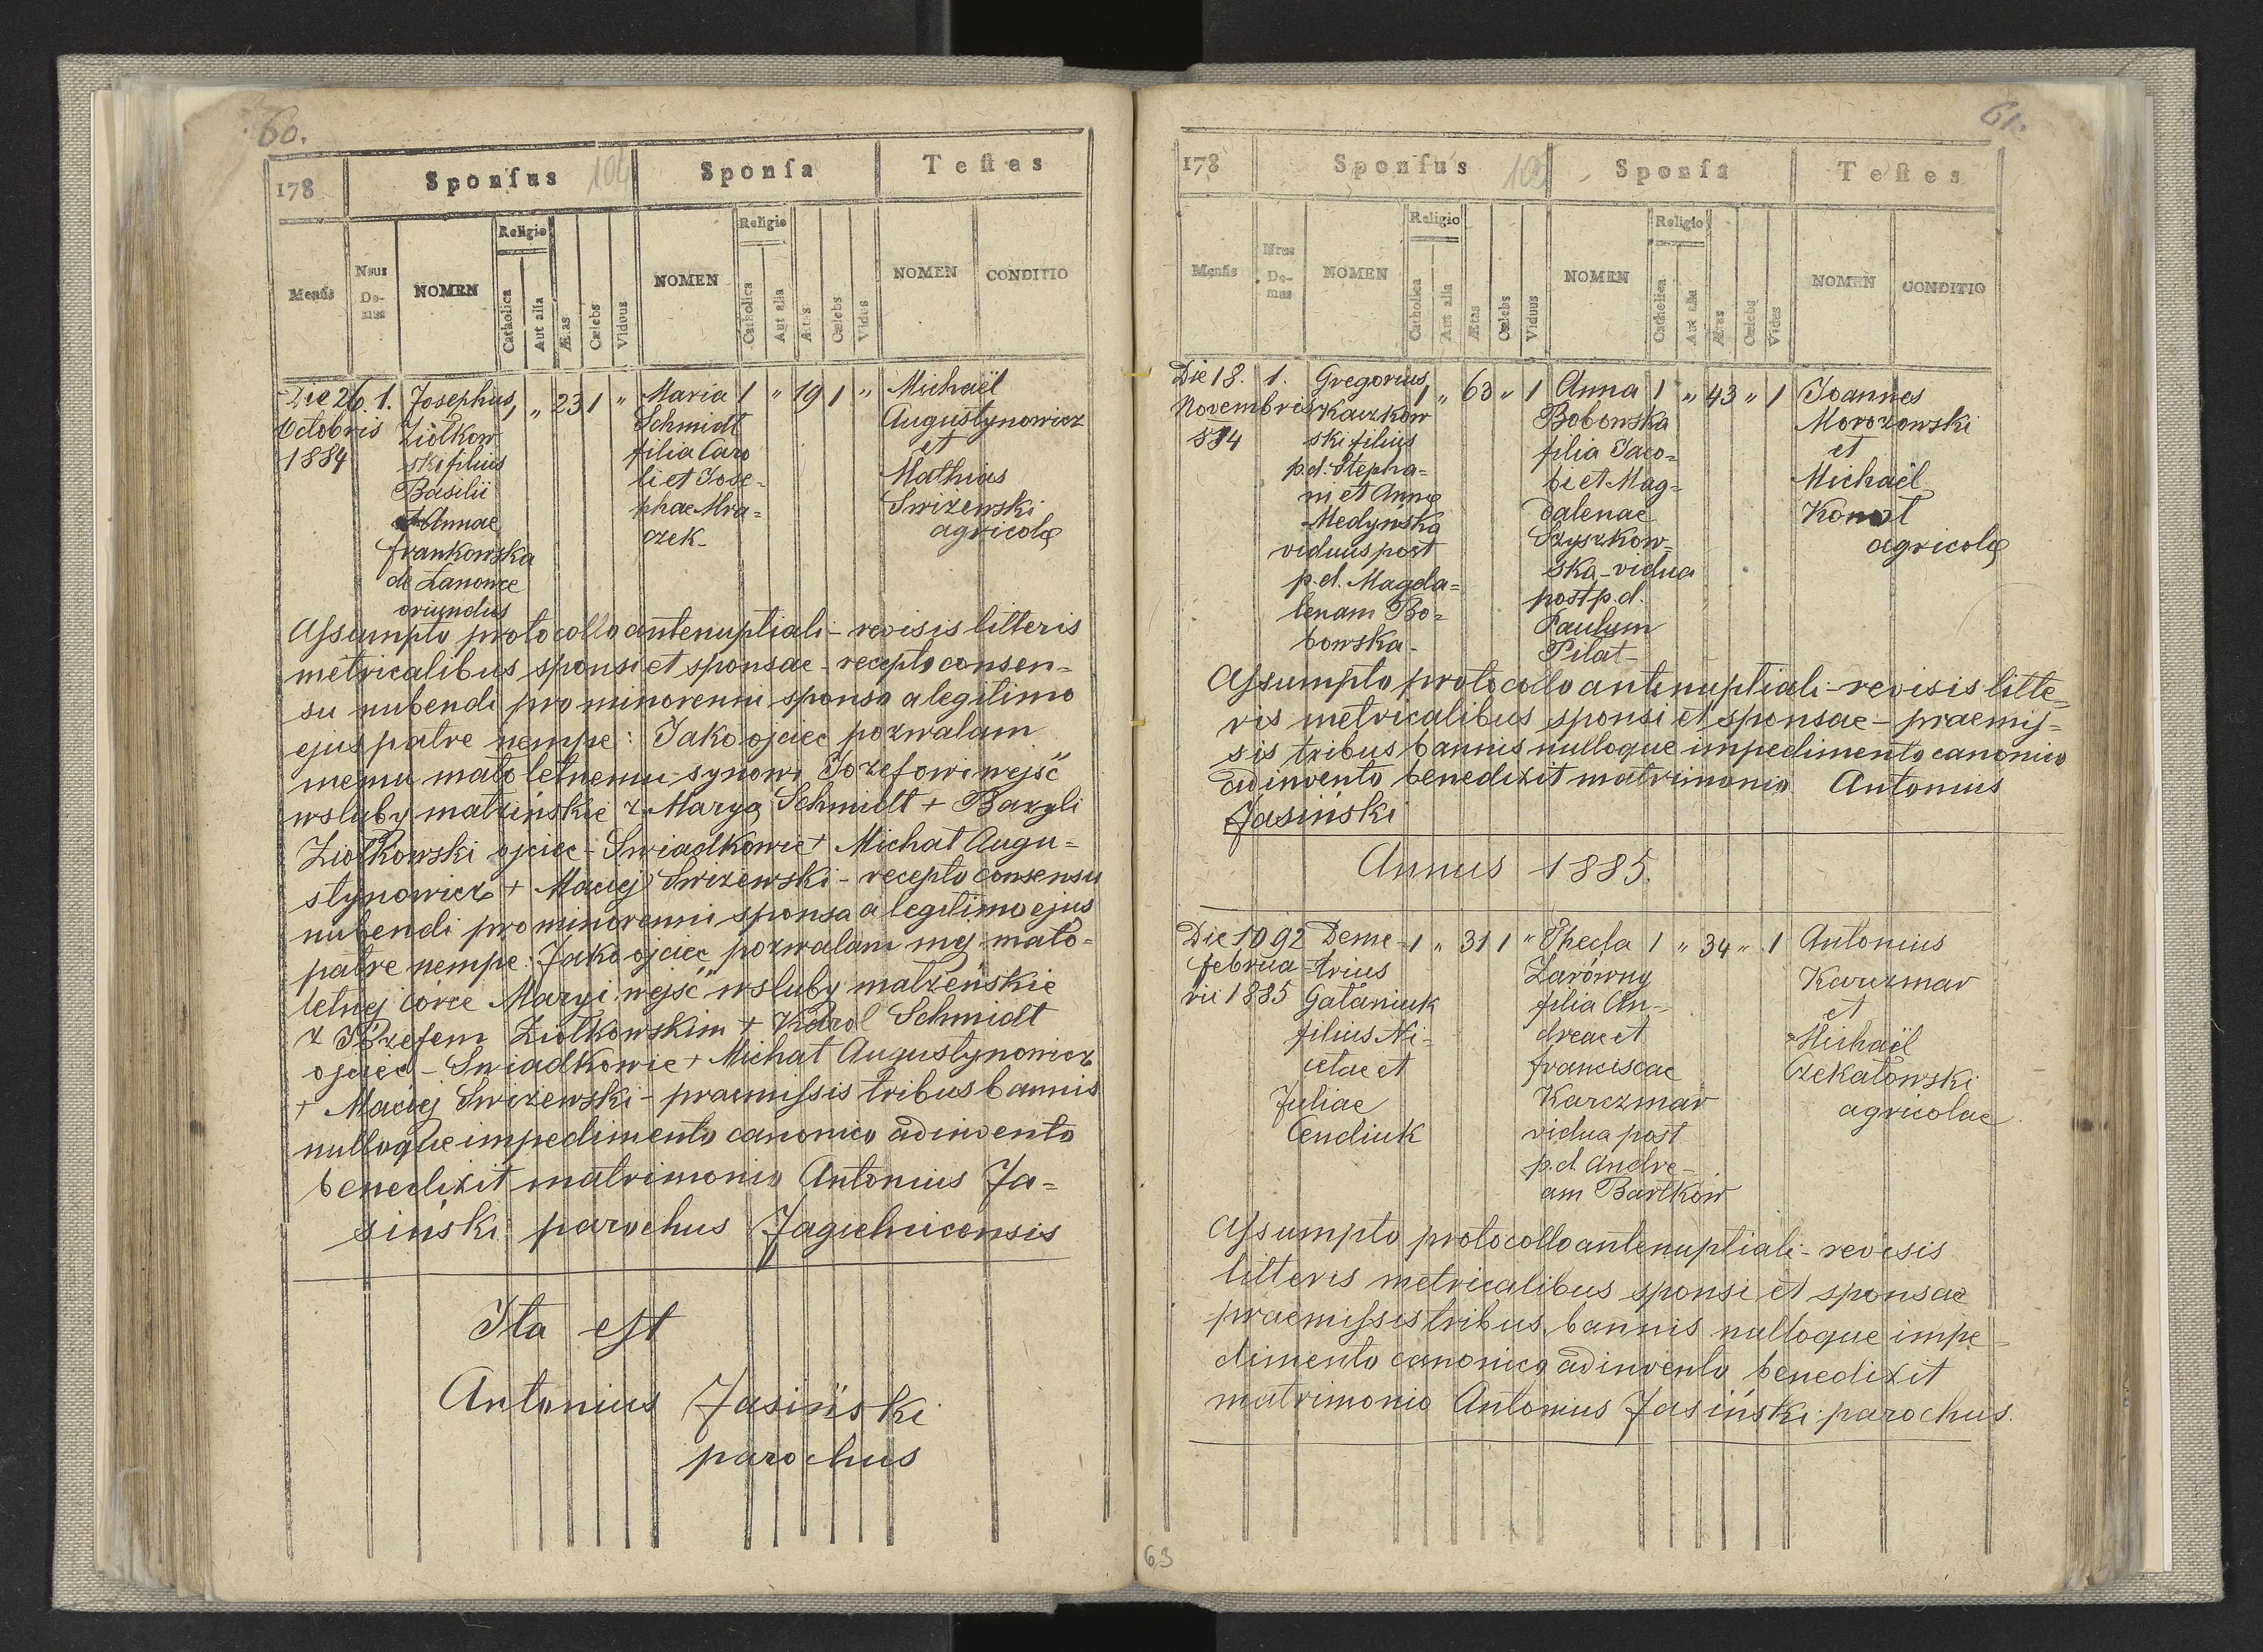 60.
178 Sponsus 104 Sponsa Testes
Mensis Nrus Domus NOMEN Religio Catholica Aut alia Ætas Cælebs Viduus NOMEN Religio Catholica Aut alia Ætas Cælebs Vidua NOMEN CONDITIO
Die 26 1. Josephus 1 " 23 1 " Maria 1 " 19 1 " Michaël
Octobris Ziółkow Schmidt Augustynowicz
1884 ski filius filia Caro et
Basilii li et Jose- Mathias
et Annae phae Mra- Swiżewski
Frankowska czek- agricolę
de Łanowce
oriundus
Assumpto protocollo antenuptiali - revisis litteris
metricalibus sponsi et sponsae - recepto consen-
su nubendi pro minorenni sponso a legitimo
ejus patre nempe: Jako ojciec pozwalam
memu małoletnemu synowi Józefowi wejść
w śluby małżińskie z Maryą Schmidt + Bazyli
Ziołkowski ojciec - Swiadkowie + Michał Augu-
stynowicz + Maciej Swiżewski - recepto consensu
nubendi pro minorenni sponsa a legitimo ejus
patre nempe: Jako ojciec pozwalam mej mało-
letnej córce Maryi wejść w śluby małżeńskie
z Józefem Ziołkowskim + Karol Schmidt
ojciec - Swiadkowie + Michał Augustynowicz
+ Maciej Swiżewski - praemissis tribus bannis
nulloque impedimento canonico adinvento
benedixit matrimonio Antonius Ja-
siński parochus Jagielnicensis
Ita est
Antonius Jasiński
parochus
61.
178 Sponsus Sponsa Testes
Mensis Nrus Domus NOMEN Religio Catholica Aut alia Ætas Cælebs Viduus NOMEN Religio Catholica Aut alia Ætas Cælebs Vidua NOMEN CONDITIO
Die 18. 1. Gregorius 1 " 63 " 1 Anna 1 " 43 " 1 Joannes
Novembris Kaczkow Bobowska Morozowski
884 ski filius filia Jaco- et
p.d. Stepha- bi et Mag- Michaël
ni et Annę dalenae
Medyńska Szyszkow- agricolę
viduus post ska - vidua
p.d. Magda- post p.d.
lenam Bo- Paulum
bowska - Pilat -
Assumpto protocollo antenuptiali - revisis litte-
ris metricalibus sponsi et sponsae - praemis-
sis tribus bannis nulloque impedimento canonico
adinvento benedixit matrimonio Antonius
Jasiński
Annus 1885.
Die 10 92 Deme- 1 " 31 1 " Thecla 1 " 34 " 1 Antonius
Februa- trius Zarówny Karczmar
rii 1885 Gałaniuk filia An- et
filius Ni- dreae et Michaël
cetae et Franciscae Czekałowski
Juliae Karczmar agricolae
Cendiuk vidua post
p.d Andre-
am Bartków
Assumpto protocollo antenuptiali - revisis
litteris metricalibus sponsi et sponsae
praemissis tribus bannis nulloque impe-
dimento canonico adinvento benedixit
matrimonio Antonius Jasiński parochus.
63